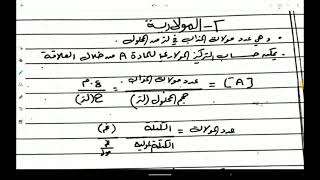 ٢- المولارية
وهي عدد مولات المذاب في لتر من المحلول.
يمكن حساب التركيز المولاري للمادة A من خلال العلاقة
[A] = عدد مولات المذاب / حجم المحلول (لتر) = ع.م / ح(لتر)
عدد المولات = الكتلة (غم) / الكتلة المولية غم/مول